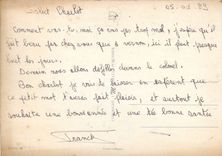 Salut Charlot 05.01.89
Comment vas-tu, moi ça va pas trop mal, j'espère qu'il
fait beau par chez vous que a verson, ici il pleut presque
tout les jours.
Demain nous allons défiler devant le colonel.
Bon charlot je vais te laisser en espérant que
ce petit mot t'auras fait plaisir, et surtout je
souhaite une bonne année et une té bonne santée
Franck